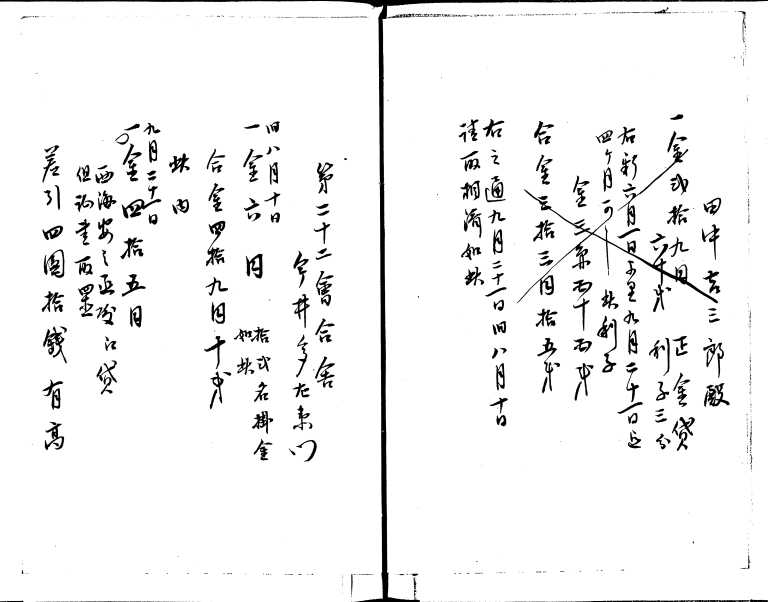 田中吉三郎殿
一金弐拾九円 正金貸
六十戋 利子三分
右新六月一日ゟ至九月二十一日迄
四ケ月 此利子
金三円五十五戋
合金三拾三円拾五戋
右之通九月二十一日旧八月十日
請取相済如此
第二十二会合舎
今井多左衛門
旧八月十日
一金六円 拾弐名掛金
如此
合金四拾九円十戋
此内
九月二十一日
一金四拾五円
西海安之丞殿江貸
但証書取置
差引四円拾銭有高